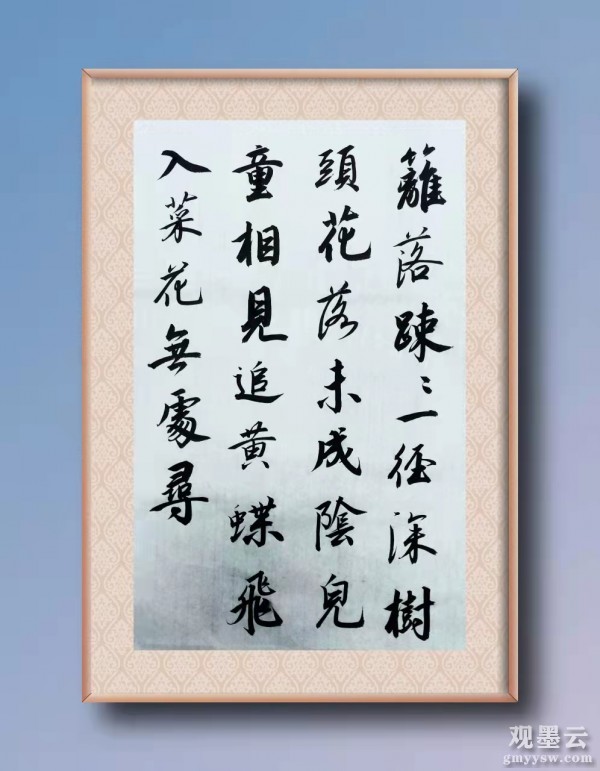 籬落踈〻一徑深樹
頭花落未成陰兒
童相見追黄蝶飛
入菜花無處尋
观墨云
gmyysw.com